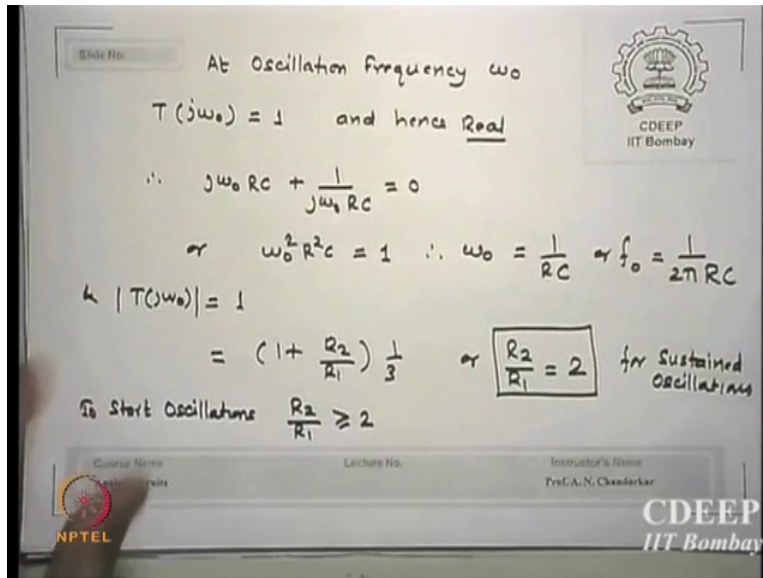 Slide No:
At Oscillation Frequency ω₀
T(jω₀) = 1 and hence Real
CDEEP
IIT Bombay
∴ jω₀ RC + 1/(jω₀ RC) = 0
or ω₀² R² C = 1 ∴ ω₀ = 1/(RC) or f₀ = 1/(2π RC)
& |T(jω₀)| = 1
= (1 + R₂/R₁) 1/3 or R₂/R₁ = 2 for Sustained Oscillations
To Start Oscillations R₂/R₁ ≥ 2
Course Name Lecture No. Instructor's Name
Prof. A. N. Chandorkar
NPTEL
CDEEP
IIT Bombay